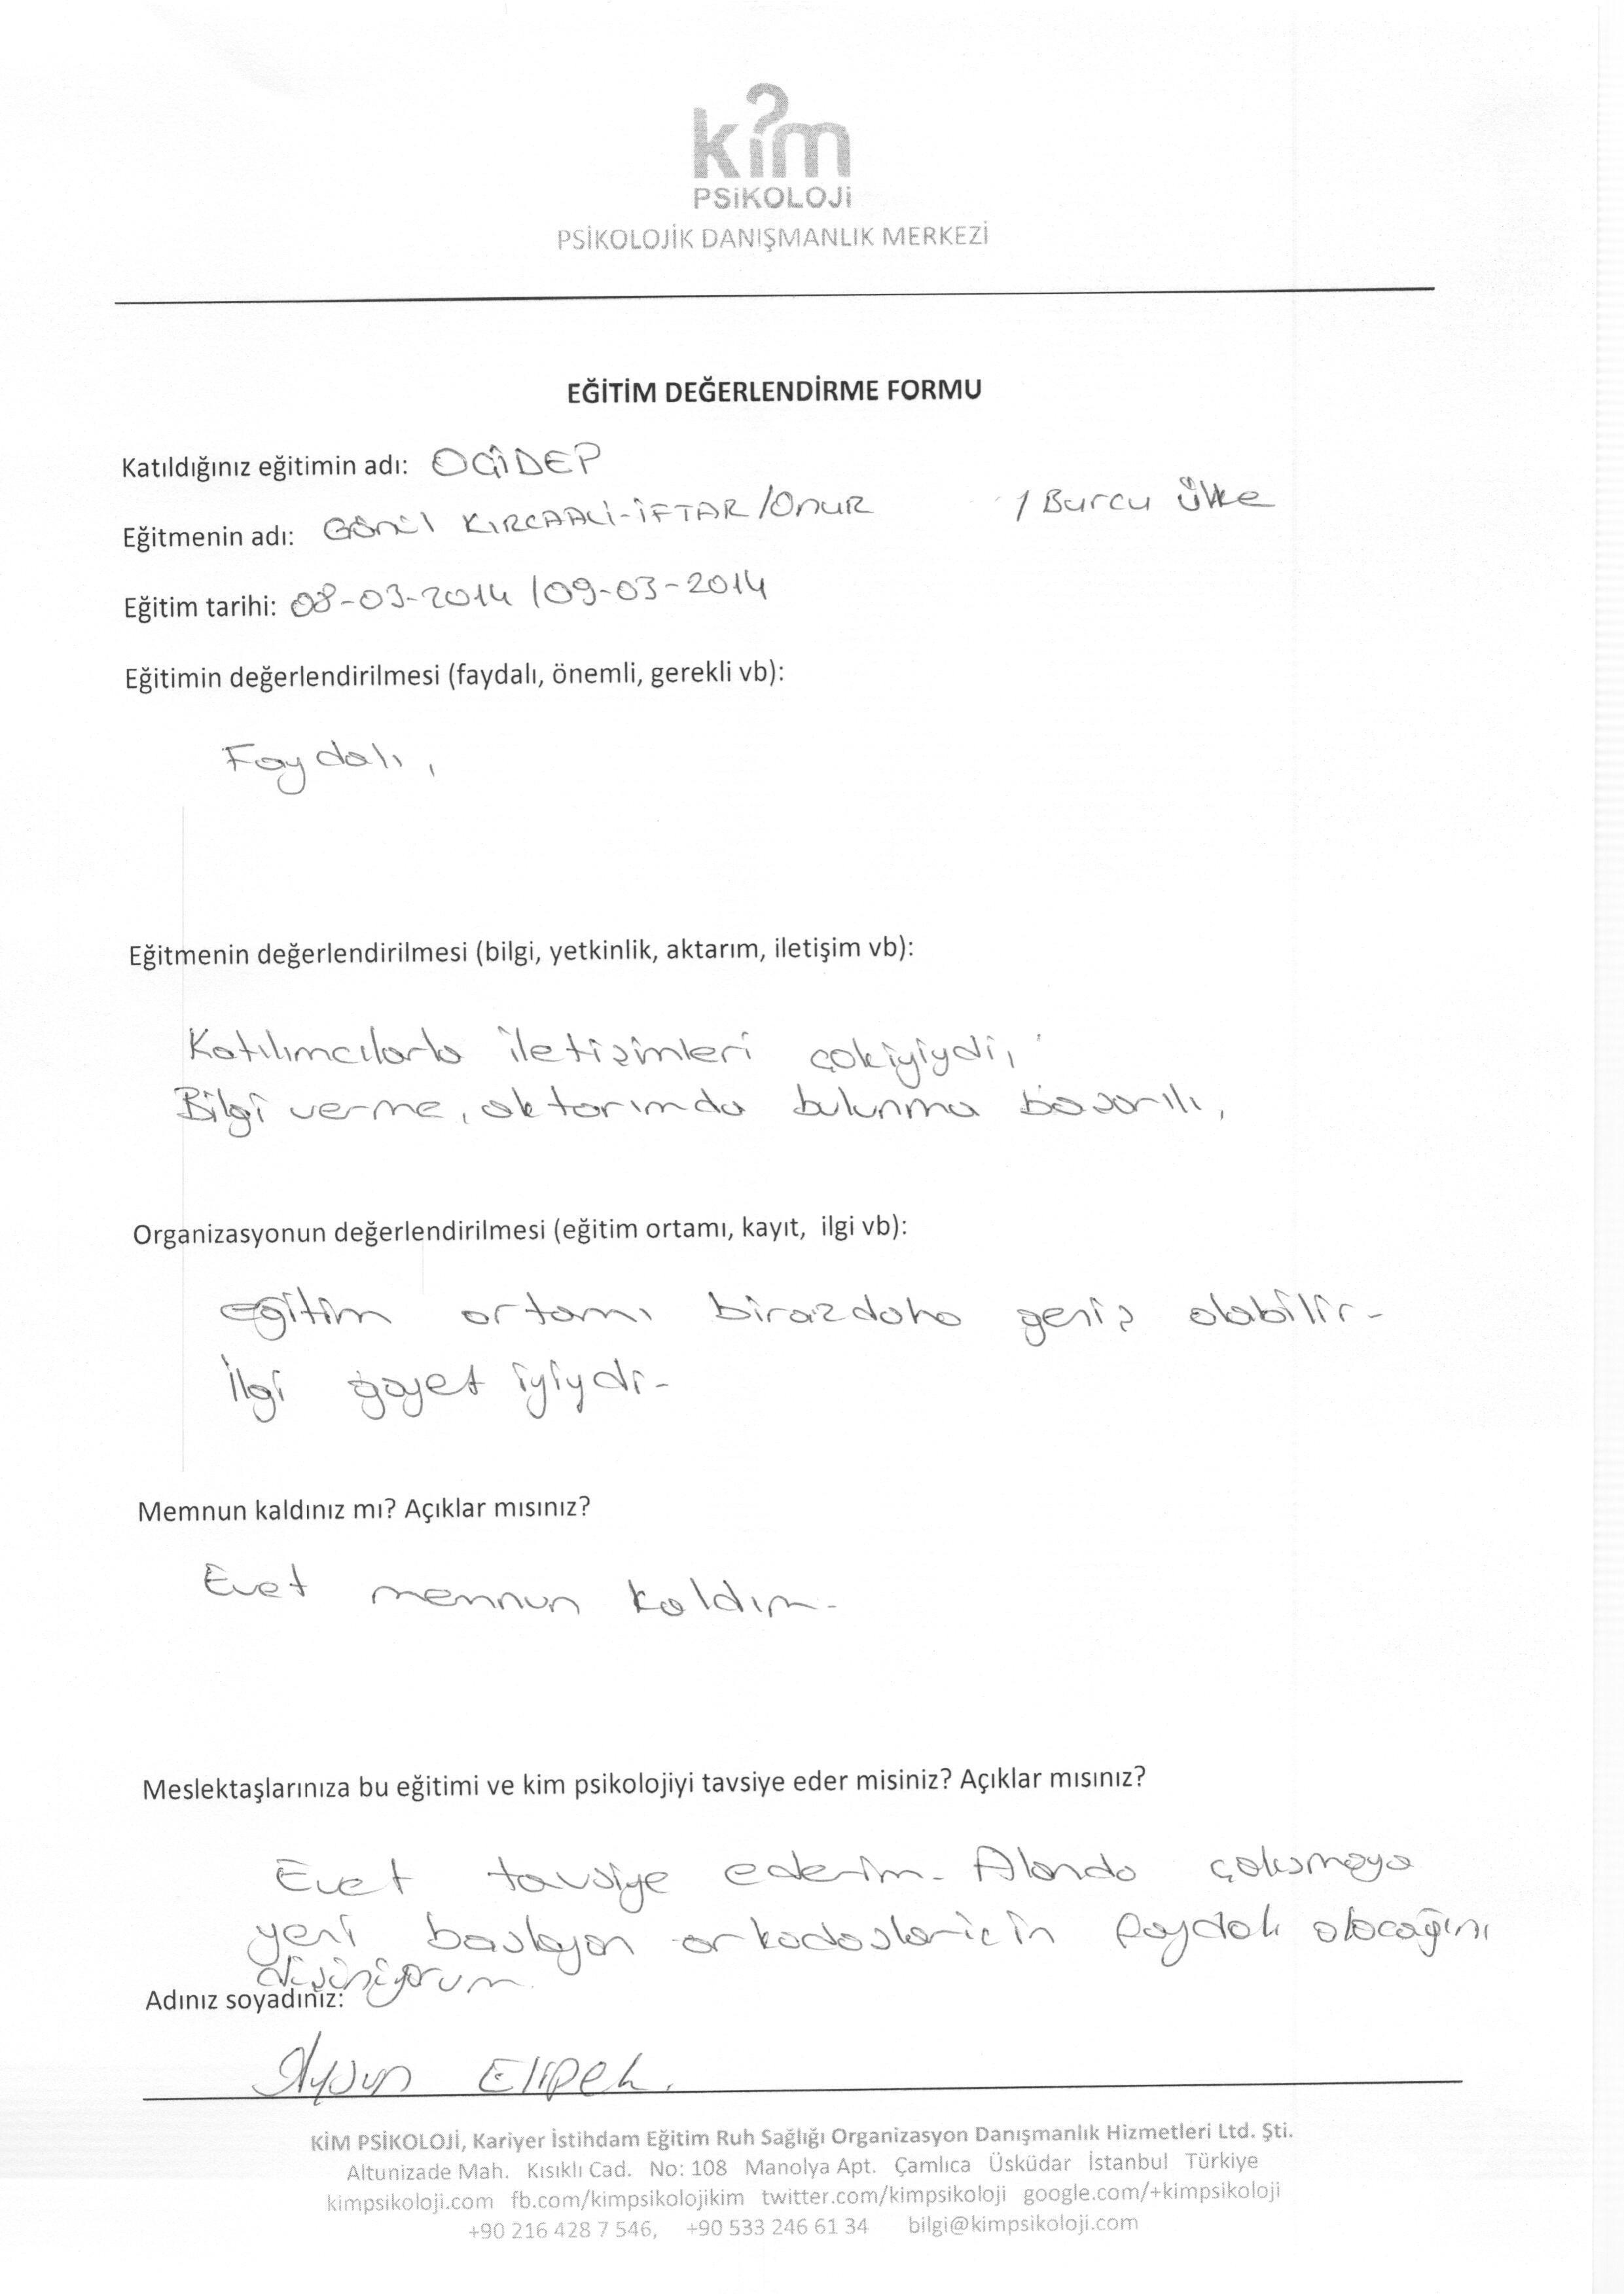 kim
PSiKOLOJi
PSİKOLOJİK DANIŞMANLIK MERKEZİ
EĞİTİM DEĞERLENDİRME FORMU
Katıldığınız eğitimin adı: OGİDEP
Eğitmenin adı: Gönül KIRCAALİ-İFTAR /Onur / Burcu Ülke
Eğitim tarihi: 08-03-2014 /09-03-2014
Eğitimin değerlendirilmesi (faydalı, önemli, gerekli vb):
Faydalı,
Eğitmenin değerlendirilmesi (bilgi, yetkinlik, aktarım, iletişim vb):
Katılımcılarla iletişimleri çokiyiydi,
Bilgi verme, aktarımda bulunma başarılı,
Organizasyonun değerlendirilmesi (eğitim ortamı, kayıt, ilgi vb):
eğitim ortamı birazdaha geniş olabilir-
İlgi gayet iyiydi-
Memnun kaldınız mı? Açıklar mısınız?
Evet memnun kaldım-
Meslektaşlarınıza bu eğitimi ve kim psikolojiyi tavsiye eder misiniz? Açıklar mısınız?
Evet tavsiye ederim- Alanda çalışmaya
yeni başlayan arkadaşlariçin faydalı olacağını
düşünüyorum.
Adınız soyadınız:
Aysun Elipek.
KİM PSİKOLOJİ, Kariyer İstihdam Eğitim Ruh Sağlığı Organizasyon Danışmanlık Hizmetleri Ltd. Şti.
Altunizade Mah. Kısıklı Cad. No: 108 Manolya Apt. Çamlıca Üsküdar İstanbul Türkiye
kimpsikoloji.com fb.com/kimpsikolojikim twitter.com/kimpsikoloji google.com/+kimpsikoloji
+90 216 428 7 546, +90 533 246 61 34 bilgi@kimpsikoloji.com